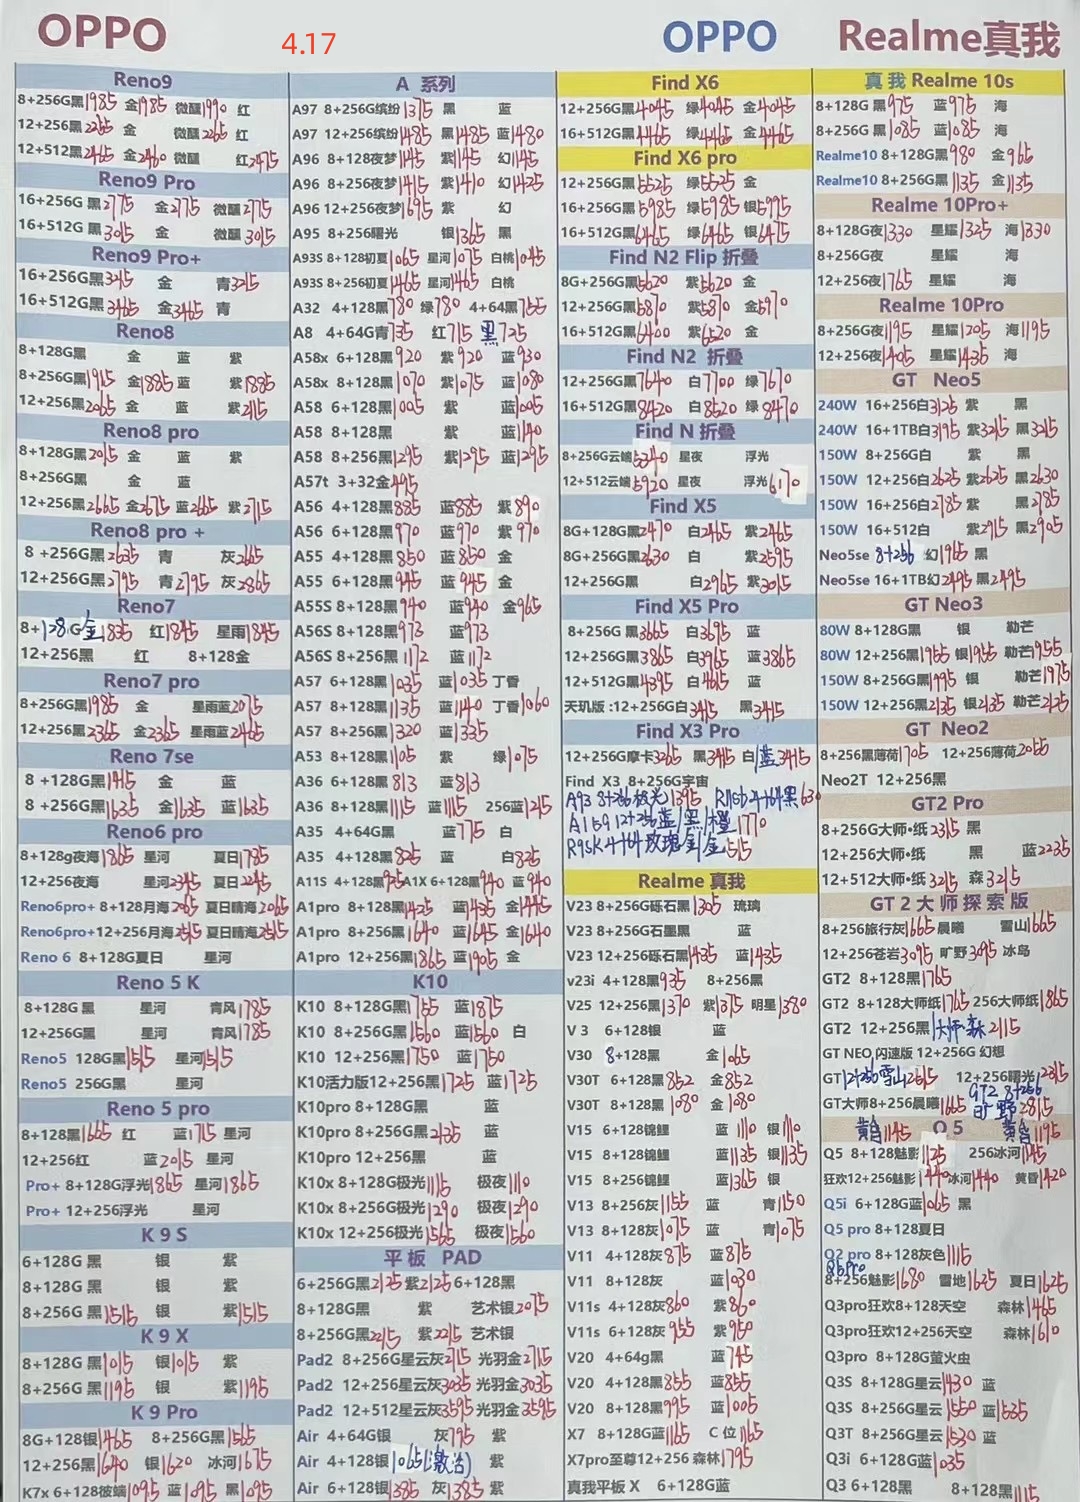 OPPO
4.17
OPPO
Realme真我
Reno9
8+256G黑1985 金1985 微醺1990 红
12+256黑2265 金 微醺2265 红
12+512黑2465 金2460 微醺 红2475
Reno9 Pro
16+256G 黑2775 金2775 微醺2775
16+512G 黑3015 金 微醺3015
Reno9 Pro+
16+256G黑3245 金 青3215
16+512G黑3465 金3465 青
Reno8
8+128G黑 金 蓝 紫
8+256G黑1915 金1885 蓝 紫1885
12+256黑2065 金 蓝 紫2115
Reno8 pro
8+128G黑2015 金 蓝 紫
8+256G黑 金 蓝
12+256黑2665 金2675 蓝2665 紫2715
Reno8 pro +
8 +256G黑2635 青 灰2665
12+256G黑2795 青2795 灰2865
Reno7
8+128G金1835 红1845 星雨1845
12+256黑 红 8+128金
Reno7 pro
8+256G黑1985 金 星雨蓝2075
12+256黑2365 金2365 星雨蓝2465
Reno 7se
8 +128G黑1415 金 蓝
8 +256G黑1635 金1635 蓝1635
Reno6 pro
8+128g夜海1865 星河 夏日1785
12+256夜海 星河2345 夏日2245
Reno6pro+ 8+128月海2065 夏日晴海2065
Reno6pro+12+256月海2515 夏日晴海2515
Reno 6 8+128G夏日 星河
Reno 5 K
8+128G 黑 星河 青风1785
12+256G黑 星河 青风1785
Reno5 128G黑1515 星河1515
Reno5 256G黑 星河
Reno 5 pro
8+128黑1665 红 蓝1715 星河
12+256红 蓝2015 星河
Pro+ 8+128G浮光1865 星河1865
Pro+ 12+256浮光 星河
K 9 S
6+128G 黑 银 紫
8+128G 黑 银 紫
8+256G 黑1515 银 紫1515
K 9 X
8+128G 黑1015 银1015 紫
8+256G 黑1195 银 紫1195
K 9 Pro
8G+128银1465 8+256G黑1565
12+256黑1640 银1620 冰河1675
K7x 6+128彼端1095 蓝1095 黑1095
A 系列
A97 8+256G缤纷1375 黑 蓝
A97 12+256缤纷1485 黑1485 蓝1480
A96 8+128夜梦1145 紫1145 幻1145
A96 8+256夜梦1415 紫1410 幻1425
A96 12+256夜梦1695 紫 幻
A95 8+256曙光 银1365 黑
A93S 8+128初夏1065 星河1075 白桃1045
A93S 8+256初夏1465 星河1465 白桃
A32 4+128黑780 绿780 4+64黑765
A8 4+64G青735 红715 黑725
A58x 6+128黑920 紫920 蓝930
A58x 8+128黑1070 紫1075 蓝1080
A58 6+128黑1005 紫 蓝1005
A58 8+128黑 紫 蓝1140
A58 8+256黑1295 紫1295 蓝1295
A57t 3+32金495
A56 4+128黑885 蓝885 紫890
A56 6+128黑970 蓝970 紫970
A55 4+128黑850 蓝850 金
A55 6+128黑945 蓝945 金
A55S 8+128黑940 蓝940 金965
A56S 8+128黑973 蓝973
A56S 8+256黑1172 蓝1172
A57 6+128黑1035 蓝1035 丁香
A57 8+128黑1135 蓝1140 丁香1060
A57 8+256黑1320 蓝1335
A53 8+128黑1105 紫 绿1075
A36 6+128黑813 蓝813
A36 8+128黑1115 蓝1115 256蓝1215
A35 4+64G黑 蓝775 白
A35 4+128黑825 蓝 白825
A11S 4+128黑925 A1X 6+128黑940 蓝940
A1pro 8+128黑1425 蓝1435 金1445
A1pro 8+256黑1640 蓝1645 金1640
A1pro 12+256黑1865 蓝1905 金
K10
K10 8+128G黑1765 蓝1875
K10 8+256G黑1560 蓝1560 白
K10 12+256黑1750 蓝1750
K10活力版12+256黑1725 蓝1725
K10pro 8+128G黑 蓝
K10pro 8+256G黑2435 蓝
K10pro 12+256黑 蓝
K10x 8+128G极光1115 极夜1110
K10x 8+256G极光1290 极夜1290
K10x 12+256极光1565 极夜1560
平板 PAD
6+256G黑2125 紫2125 6+128黑
8+128G黑 紫 艺术银2075
8+256G黑2215 紫2215 艺术银
Pad2 8+256G星云灰2715 光羽金2715
Pad2 12+256星云灰3035 光羽金3035
Pad2 12+512星云灰3595 光羽金3595
Air 4+64G银 灰795 紫
Air 4+128银1065(激活) 紫
Air 6+128银1385 灰1385 紫
Find X6
12+256G黑4045 绿4045 金4045
16+512G黑4465 绿4465 金4465
Find X6 pro
12+256G黑5525 绿5525 金
16+256G黑5985 绿5985 银5995
16+512G黑6465 绿6465 银6475
Find N2 Flip 折叠
8G+256G黑5620 紫5620 金
12+256G黑5870 紫5870 金5970
16+512G黑6400 紫6520 金
Find N2 折叠
12+256G黑7640 白7700 绿7670
16+512G黑8420 白8520 绿8470
Find N 折叠
8+256G云端5340 星夜 浮光
12+512云端5920 星夜 浮光6170
Find X5
8G+128G黑2470 白2465 紫2465
8G+256G黑2630 白 紫2595
12+256G黑 白2965 紫3015
Find X5 Pro
8+256G 黑3665 白3695 蓝
12+256G黑3865 白3965 蓝3865
12+512G黑4895 白4615 蓝
天玑版:12+256G白3415 黑3415
Find X3 Pro
12+256G摩卡3265 黑3415 白 蓝3415
Find X3 8+256G宇宙
A93 8+256极光1395 R15 6+64黑630
A1 5G 12+256蓝/黑/橙1770
R9SK 4+64玫瑰金 金515
Realme 真我
V23 8+256G砾石黑1305 琉璃
V23 8+256G石墨黑 蓝
V23 12+256砾石1435 蓝1435
v23i 4+128黑935 8+256黑
V25 12+256黑1370 紫1375 明星1380
V 3 6+128银 蓝
V30 8+128黑 金1065
V30T 6+128黑852 金852
V30T 8+128黑1080 金1080
V15 6+128锦鲤 蓝1110 银1110
V15 8+128锦鲤 蓝1135 银1135
V15 8+256锦鲤 蓝1365 银
V13 8+256灰1155 蓝 青1150
V13 8+128灰1075 蓝 青1075
V11 4+128灰875 蓝875
V11 8+128灰 蓝1030
V11s 4+128灰860 紫860
V11s 6+128灰955 紫950
V20 4+64g黑 蓝745
V20 4+128黑855 蓝855
V20 8+128黑995 蓝1005
X7 8+128G蓝1165 C位1165
X7pro至尊12+256 森林1795
真我平板 X 6+128G蓝
真 我 Realme 10s
8+128G 黑975 蓝975 海
8+256G 黑1085 蓝1085 海
Realme10 8+128G黑980 金965
Realme10 8+256G黑1135 金1135
Realme 10Pro+
8+128G夜1330 星耀1325 海1330
8+256G夜 星耀 海
12+256夜1765 星耀 海
Realme 10Pro
8+256G夜1195 星耀1205 海1195
12+256夜1405 星耀1435 海
GT Neo5
240W 16+256白3125 紫 黑
240W 16+1TB白3195 紫3215 黑3215
150W 8+256G白 紫 黑
150W 12+256白2625 紫2625 黑2630
150W 16+256白2785 紫 黑2785
150W 16+512白 紫2915 黑2905
Neo5se 8+256 幻1965 黑
Neo5se 16+1TB幻2495 黑2495
GT Neo3
80W 8+128G黑 银 勒芒
80W 12+256黑1955 银1955 勒芒1955
150W 8+256G黑1995 银 勒芒1975
150W 12+256黑2135 银2135 勒芒2125
GT Neo2
8+256黑薄荷1705 12+256薄荷2055
Neo2T 12+256黑
GT2 Pro
8+256G大师·纸2315 黑
12+256大师·纸 黑 蓝2235
12+512大师·纸3215 森3215
GT 2 大 师 探 索 版
8+256旅行灰1665 晨曦 雪山1665
12+256苍岩3095 旷野3095 冰岛
GT2 8+128黑1765
GT2 8+128大师纸1765 256大师纸1865
GT2 12+256黑 大师·森2115
GT NEO 闪速版 12+256G 幻想
GT12+256雪山2615 12+256曙光2315
GT大师8+256晨曦1665 GT2 8+256旷野2815
Q 5
黄昏1145 黄昏1195
Q5 8+128魅影1125 256冰河1145
狂欢12+256魅影1440 冰河1440 黄昏1420
Q5i 6+128G蓝1065 黑
Q5 pro 8+128夏日
Q2 pro 8+128灰色1115
Q5Pro
8+256魅影1680 雪地1635 夏日1625
Q3pro狂欢8+128天空 森林1465
Q3pro狂欢12+256天空 森林1610
Q3pro 8+128G萤火虫
Q3S 8+128G星云1430 蓝
Q3S 8+256G星云1550 蓝1535
Q3T 8+256G星云1530 蓝
Q3i 6+128G蓝1035
Q3 6+128黑 8+128黑1115